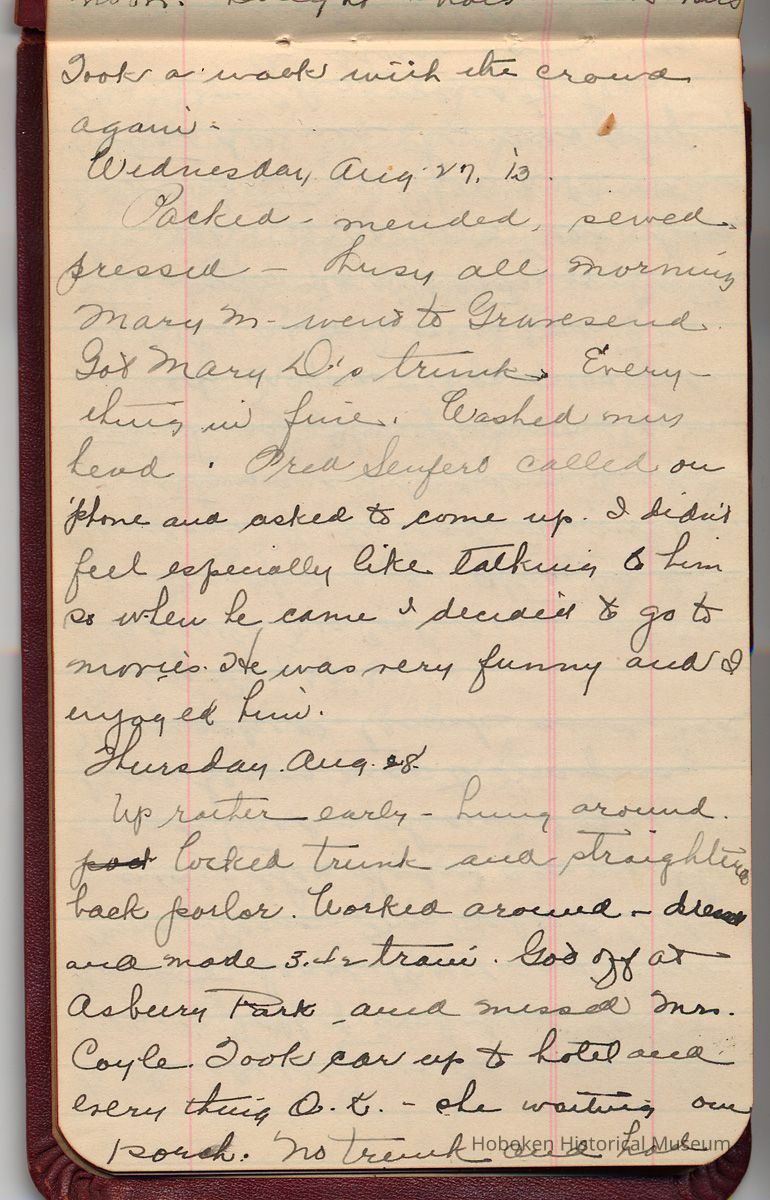 Took a walk with the crowd
again -
Wednesday Aug 27. 13.
Packed - mended, sewed.
pressed - busy all morning
Mary M - went to Gravesend.
Got Mary D's trunk. Every-
thing in fine. Washed my
head. Fred Senfert called on
'phone and asked to come up. I didn't
feel especially like talking to him
so when he came I decided to go to
movies. He was very funny and I
enjoyed him.
Thursday. Aug. 28.
Up rather early - hung around.
locked trunk and straightened
back parlor. Worked around -
and made 3.42 train. Got off at
Asbury Park and missed Mrs.
Coyle. Took car up to hotel and
every thing O.K. - she waiting on
porch. No trunk and had
Hoboken Historical Museum